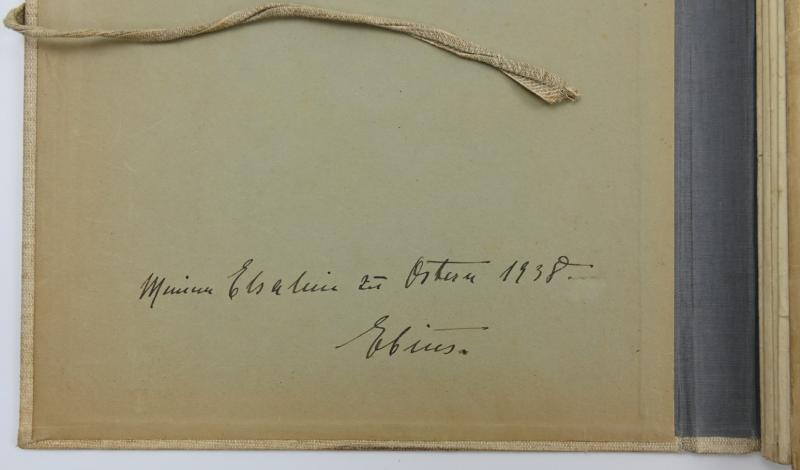 Meiner Elsalein zu Ostern 1938.
Ebius.